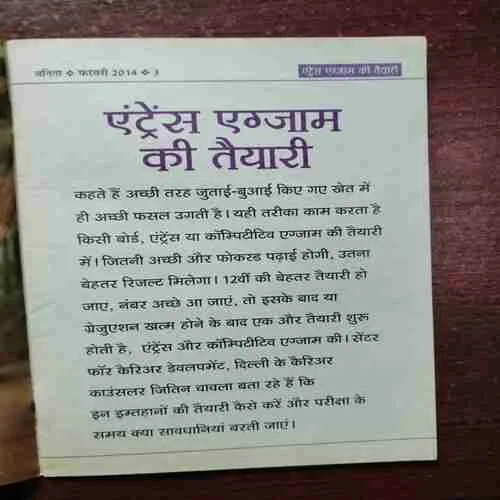 वनिता ❖ फरवरी 2014 ❖ 3
एंट्रेंस एग्जाम की तैयारी
एंट्रेंस एग्जाम
की तैयारी
कहते हैं अच्छी तरह जुताई-बुआई किए गए खेत में
ही अच्छी फसल उगती है। यही तरीका काम करता है
किसी बोर्ड, एंट्रेंस या कॉम्पिटीटिव एग्जाम की तैयारी
में। जितनी अच्छी और फोकस्ड पढ़ाई होगी, उतना
बेहतर रिजल्ट मिलेगा। 12वीं की बेहतर तैयारी हो
जाए, नंबर अच्छे आ जाएं, तो इसके बाद या
ग्रेजुएशन खत्म होने के बाद एक और तैयारी शुरू
होती है, एंट्रेंस और कॉम्पिटीटिव एग्जाम की। सेंटर
फॉर कैरिअर डेवलपमेंट, दिल्ली के कैरिअर
काउंसलर जितिन चावला बता रहे हैं कि
इन इम्तहानों की तैयारी कैसे करें और परीक्षा के
समय क्या सावधानियां बरती जाएं।